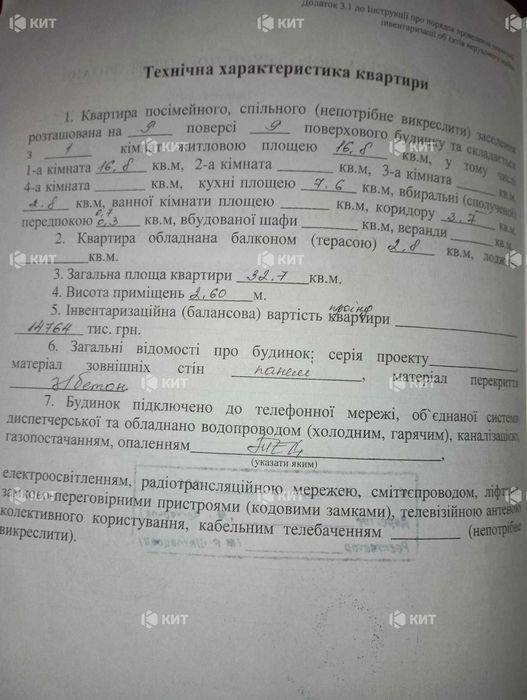 КИТ КИТ КИТ
Додаток 3.1 до Інструкції про порядок проведення технічної
інвентаризації об'єктів нерухомого майна
Технічна характеристика квартири
1. Квартира посімейного, спільного (непотрібне викреслити) заселення
розташована на 9 поверсі 9 поверхового будинку та складається
з 1 кімнат житловою площею 16,8 кв.м, у тому числі
1-а кімната 16,8 кв.м, 2-а кімната кв.м, 3-а кімната кв.м,
4-а кімната кв.м, кухні площею 7.6 кв.м, вбиральні (сполученої)
2.8 кв.м, ванної кімнати площею кв.м, коридору 3.7 кв.м,
передпокою 0,7 0,3 кв.м, вбудованої шафи кв.м, веранди кв.м.
2. Квартира обладнана балконом (терасою) 2,8 кв.м, лодж
кв.м.
3. Загальна площа квартири 32.7 кв.м.
4. Висота приміщень 2,60 м.
5. Інвентаризаційна (балансова) вартість квартири
14764 тис. грн.
6. Загальні відомості про будинок: серія проекту ,
матеріал зовнішніх стін панелі , матеріал перекриття
з/бетон
7. Будинок підключено до телефонної мережі, об`єднаної системи
диспетчерської та обладнано водопроводом (холодним, гарячим), каналізацією,
газопостачанням, опаленням ТЕЦ ,
(указати яким)
електроосвітленням, радіотрансляційною мережею, сміттєпроводом, ліфтом,
замково-переговірними пристроями (кодовими замками), телевізійною антеною
колективного користування, кабельним телебаченням (непотрібне
викреслити).
КИТ КИТ КИТ